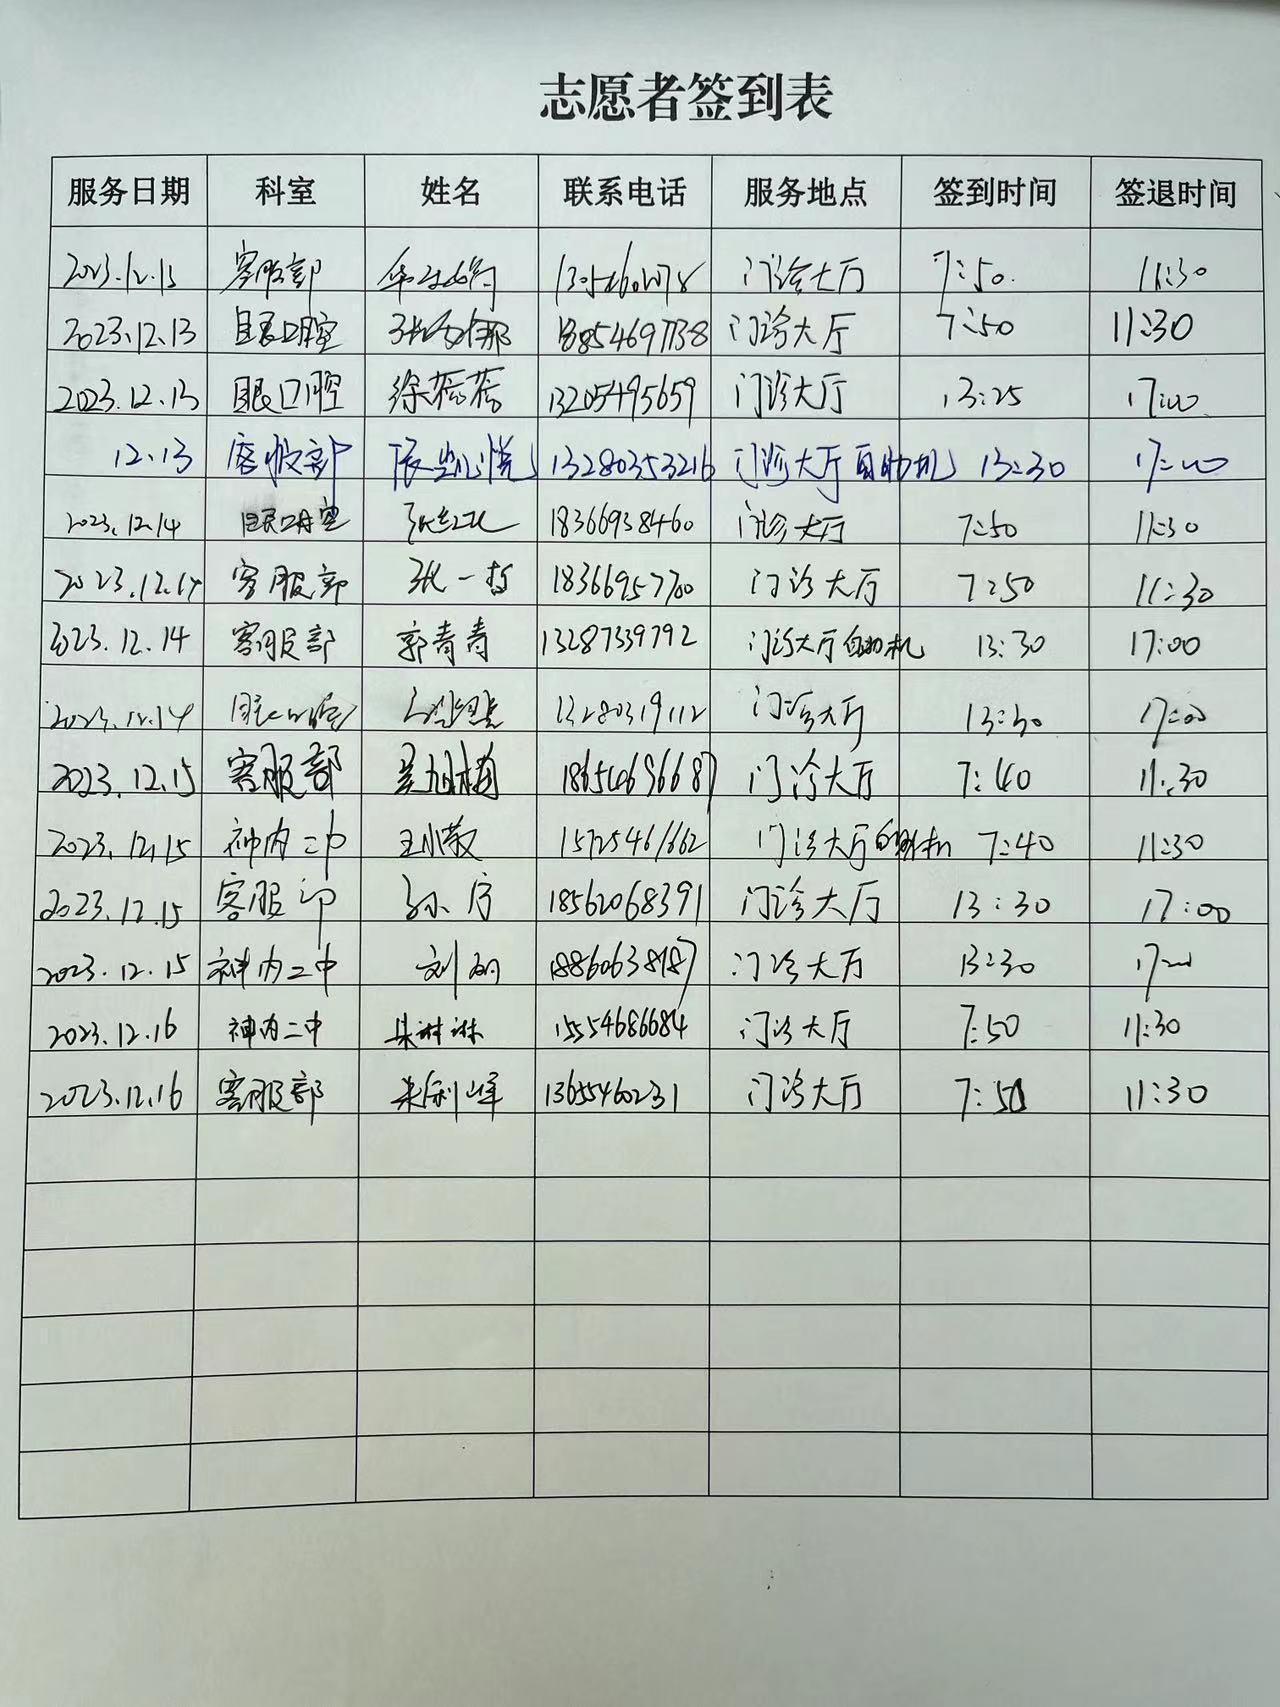 志愿者签到表
服务日期 科室 姓名 联系电话 服务地点 签到时间 签退时间
2023.12.13 客服部 门诊大厅 7:50. 11:30
2023.12.13 眼口腔 18854697138 门诊大厅 7:50 11:30
2023.12.13 眼口腔 徐蕊蕊 13205495659 门诊大厅 13:25 17:00
12.13 客服部 13280353216 门诊大厅自助机 13:30 17:00
2023.12.14 眼口腔 张红 18366938460 门诊大厅 7:50 11:30
2023.12.14 客服部 张一 18366957700 门诊大厅 7:50 11:30
2023.12.14 客服部 郭青青 13287339792 门诊大厅自助机 13:30 17:00
2023.12.14 13280319112 门诊大厅 13:30 17:00
2023.12.15 客服部 18654696687 门诊大厅 7:40 11:30
2023.12.15 神内二中 王小敬 15725461662 门诊大厅自助机 7:40 11:30
2023.12.15 客服部 孙 18562068391 门诊大厅 13:30 17:00
2023.12.15 神内二中 刘 18860638187 门诊大厅 13:30 17:00
2023.12.16 神内二中 朱琳琳 15554686684 门诊大厅 7:50 11:30
2023.12.16 客服部 朱利峰 13655460231 门诊大厅 7:50 11:30